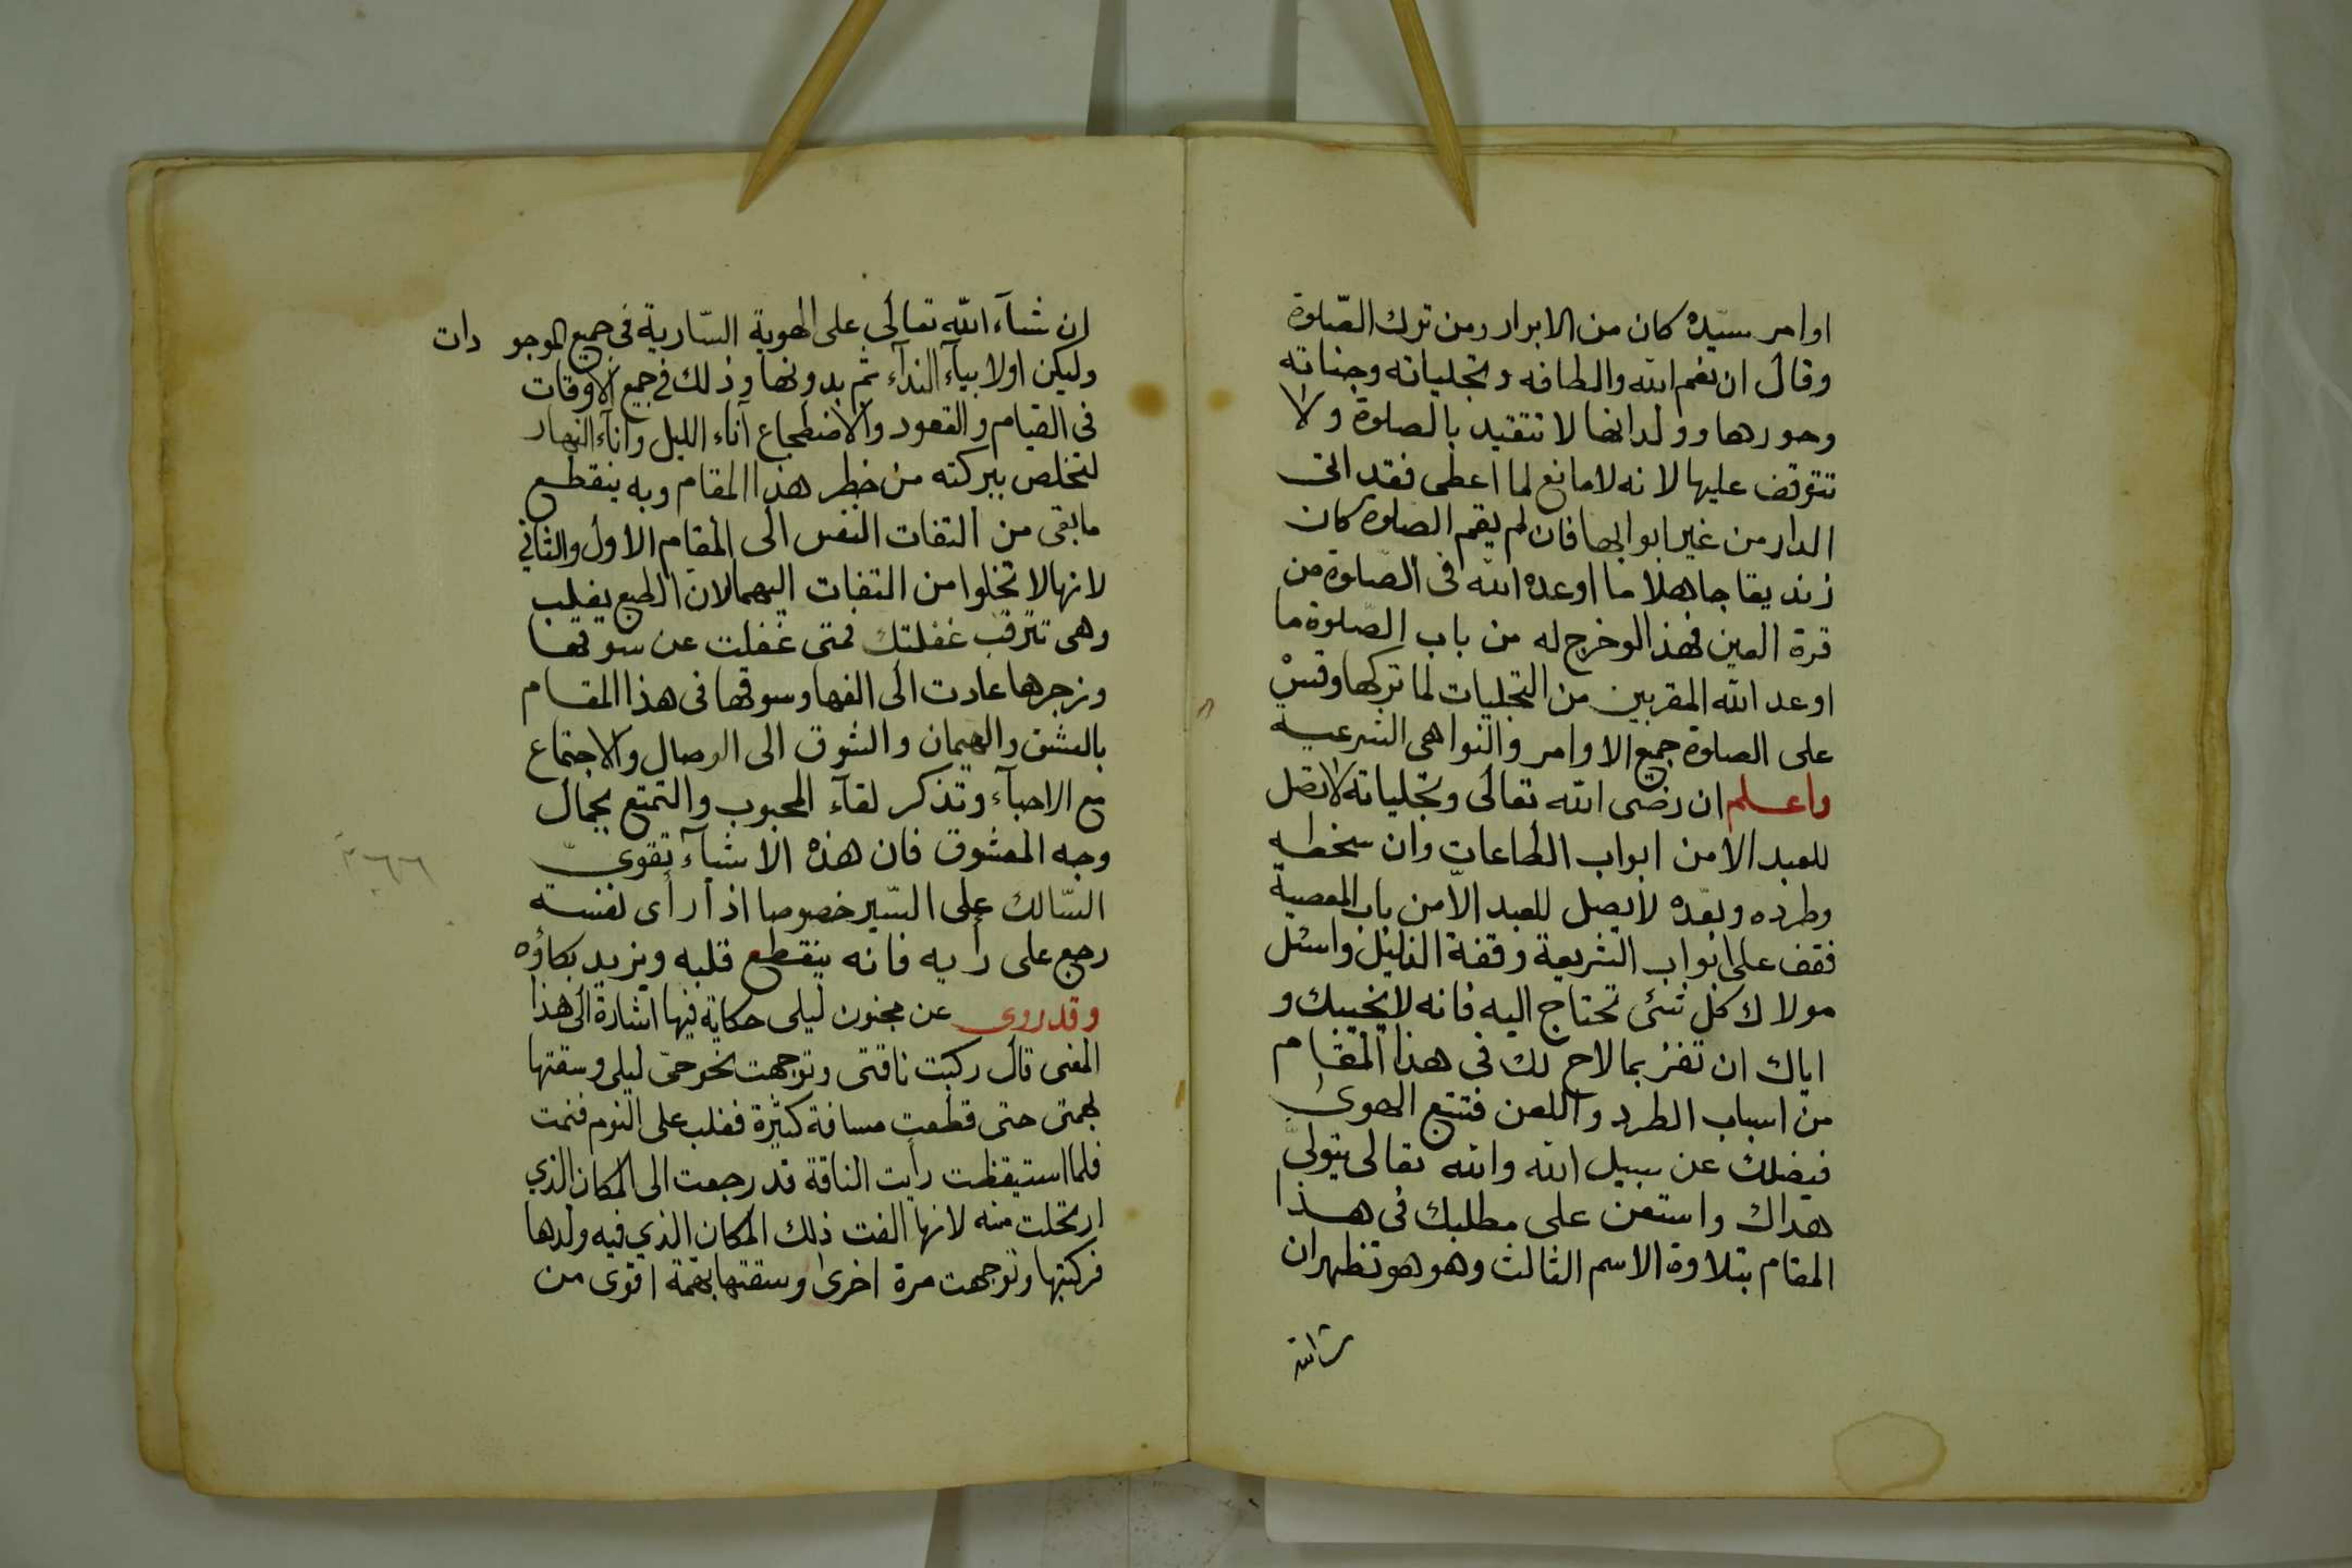 اوامر سيّده كان من الابرار ومن ترك الصّلوة
وقال ان نعم الله والطافه وتجلياته وجناته
وحورها وولدانها لا تتقيد بالصلوة ولا
تتوقف عليها لانه لامانع لما اعطى فقد اتى
الدار من غير ابوابها فان لم يقم الصلوة كان
زنديقا جاهلا ما اوعده الله فى الصّلوة من
قرة العين فهذا لو خرج له من باب الصّلوة ما
اوعد الله المقربين من التجليات لما تركها وقسْ
على الصلوة جميع الاوامر والنواهى الشرعيه
واعلم ان رضى الله تعالى وتجلياته لا تصل
للعبد الا من ابواب الطاعات وان سخطه
وطرده وبعّده لا يصل للعبد الاّ من باب المعصية
فقف على ابواب الشريعة وقفة الذليل واسئل
مولاك كل شئ تحتاج اليه فانه لا يخيبك و
اياك ان تغتر بما لاح لك فى هذا المقام
من اسباب الطرد واللعن فتتبع الهوى
فيضلك عن سبيل الله والله تعالى يتولىّ
هداك واستعن على مطلبك فى هذا
المقام بتلاوة الاسم الثالث وهو هو تظهر ان
ش الله
ان شآء الله تعالى على الهوية السّارية فى جميع الموجو دات
وليكن اولا بيآء الندآء ثم بدونها وذلك فى جميع الاوقات
فى القيام والقعود والاضطجاع آناء الليل وآناء النهار
لتخلص ببركته من خطر هذا المقام وبه ينقطع
مابقى من التفات النفس الى المقام الاول والثانى
لانها لا تخلوا من التفات اليهما لان الطبع يغلب
وهى تترقب غفلتك فمتى غفلت عن سوقها
وزجرها عادت الى الفها وسوقها فى هذا المقام
بالعشق والهيمان والشوق الى الوصال والاجتماع
مع الاحبآء وتذكر لقآء المحبوب والتمتع بجمال
وجه المعشوق فان هذه الاشيآء تقوىّ
السّالك على السّير خصوصا اذا رأى نفسه
رجع على رأيه فانه ينقطع قلبه ويزيد بكاؤه
وقد روى عن مجنون ليلى حكاية فيها اشارة الى هذا
المعنى قال ركبت ناقتى وتوجهت نحو حىّ ليلى وسقتها
بهمتى حتى قطعت مسافة كثيرة فغلب على النوم فنمت
فلما استيقظت رأيت الناقة قد رجعت الى المكان الذي
ارتحلت منه لانها الفت ذلك المكان الذي فيه ولدها
فركبتها وتوجهت مرة اخرى وسقتها بهمة اقوى من